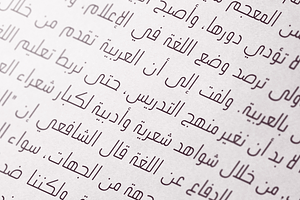 من المعجم
لا تؤدي دورها، وأصبح
ولى ترصد وضع اللغة في الإعلام، و
بالعربية. ولفت إلى أن العربية تقدم من خلال
لا بد أن نغير منهج التدريس حتى نربط تعليم اللغة
من خلال شواهد شعرية وأدبية لكبار شعراء الع
الدفاع عن اللغة قال الشافعي إن "ال
جهة من الجهات، سواء ال
ولكننا ضد